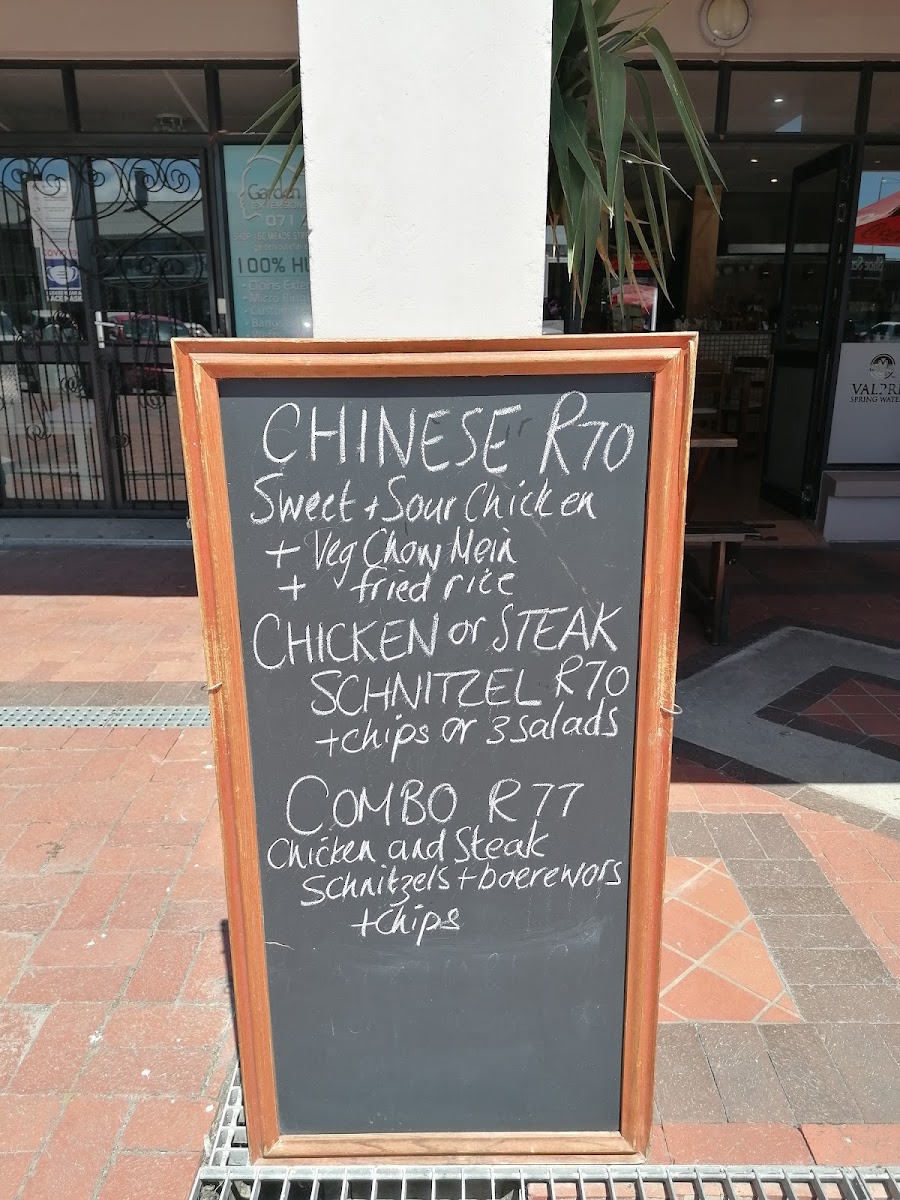 CHINESE R70
Sweet + Sour Chicken
+ Veg Chow Mein
+ fried rice
CHICKEN or STEAK
SCHNITZEL R70
+ chips or 3 salads
COMBO R77
Chicken and Steak
Schnitzels + boerewors
+ chips
Garden
071
100% HU
VALPRE
SPRING WATER